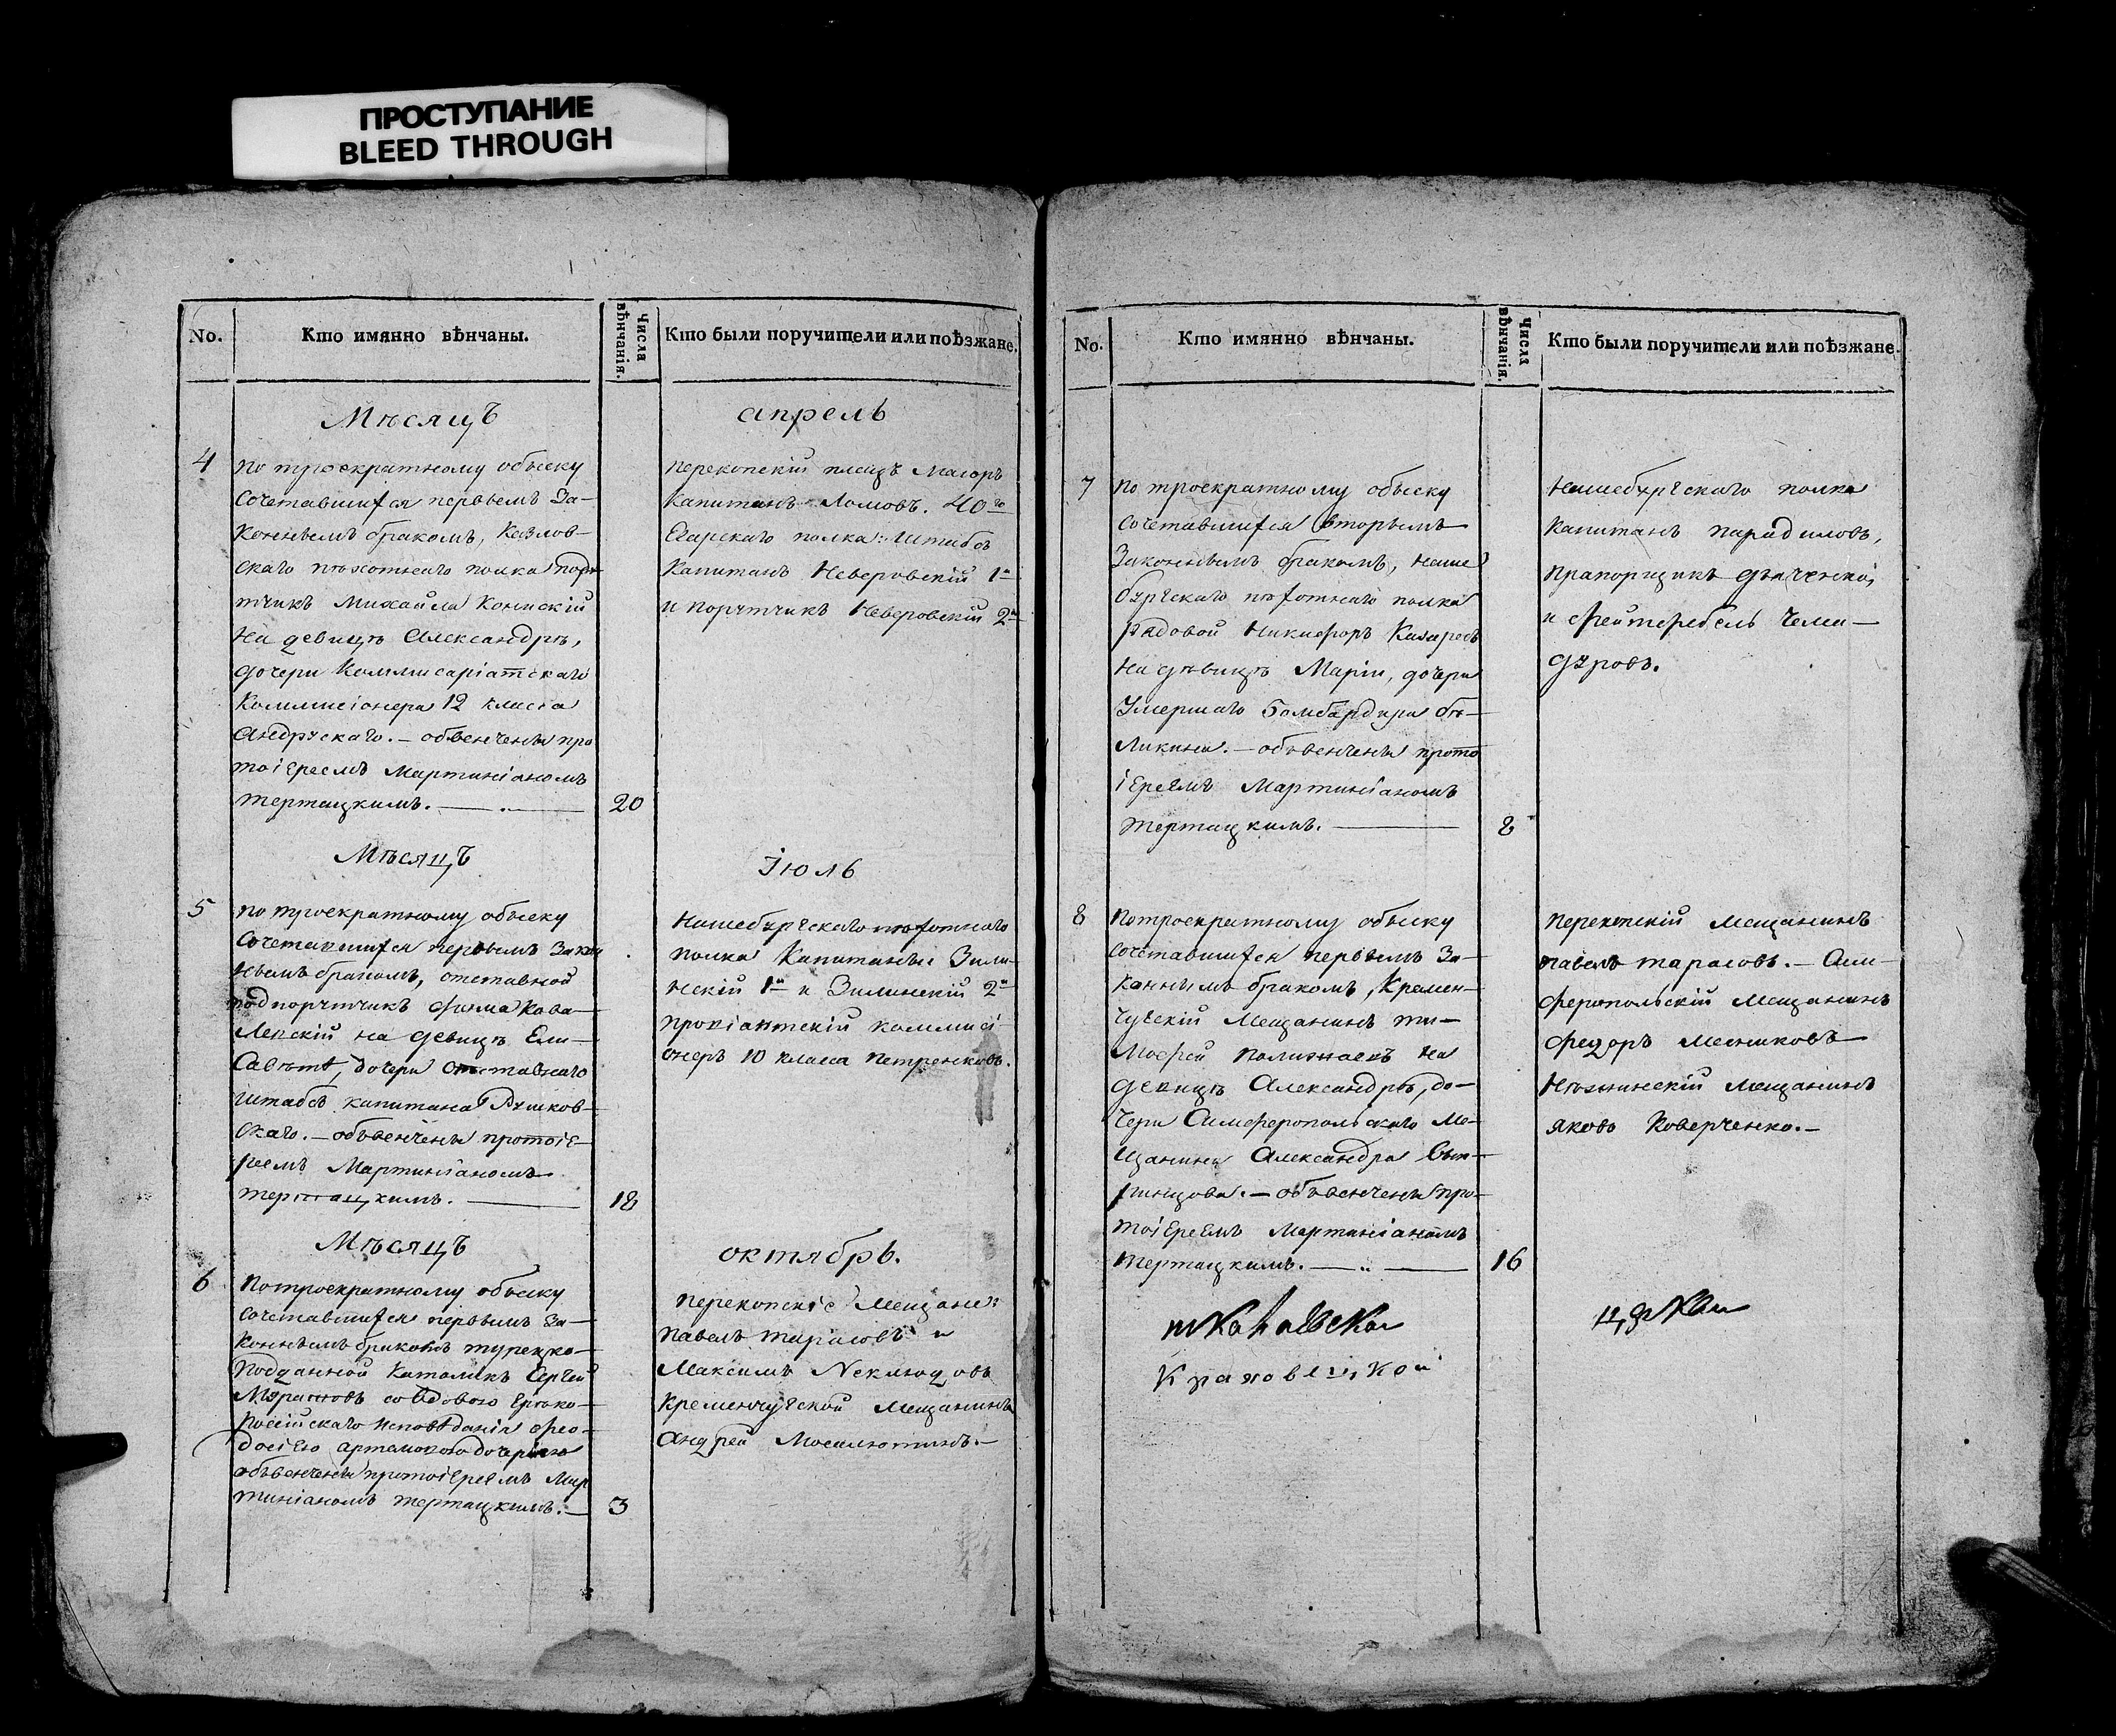 ПРОСТУПАНИЕ
BLEED THROUGH
No.
Кто имянно вѣнчаны.
Числа вѣнчанія.
Кто были поручители или поѣзжане.
Мѣсяцъ
4
по троекратному обыску
сочетавшійся первымъ за-
коннымъ бракомъ, Козлов-
скаго пѣхотнаго полка пору-
тчикъ Михайла
на девицѣ Александрѣ,
дочери Коммисаріатскаго
Коммисіонера 12 класса
Андрускаго. – обвенчены про
тоіереемъ Мартиніаномъ
тертацкимъ. —
20
апрель
перекопскій плацъ Маіоръ
капитанъ Ломовъ. 40го
Егарскаго полка: Штабсъ
Капитанъ Неверовскій 1й
и порутчикъ Неверовскій 2й
Мѣсяцъ
5
по троекратному обыску
сочетавшійся первымъ закон
нымъ бракомъ, отставной
подпорутчикъ Фома Кова-
левскій на девицѣ Ели-
савѣтѣ, дочери отставнаго
штабсъ капитана
скаго. – объвенчены протоіе-
реемъ Мартиніаномъ
тертацкимъ. —
18
Іюль
Нашебургскаго пѣхотнаго
полка Капитаны Зили-
нскій 1й и Зилинскій 2й
провіантскій коммисі-
онеръ 10 класса Петренковъ.
Мѣсяцъ
6
по троекратному обыску
сочетавшійся первымъ за-
коннымъ бракомъ турецко-
подданной Католикъ Сергей
со вдовою Греко-
россійскаго исповѣданія Фео-
досіею дочерью
объвенчены протоіереемъ Мар
тиніаномъ тертацкимъ. —
3
октябрь.
перекопскіе Мещане:
павелъ тарасовъ и
Максимъ Неклюдовъ
Кременчугской Мещанинъ
Андрей
No.
Кто имянно вѣнчаны.
Числа вѣнчанія.
Кто были поручители или поѣзжане.
7
по троекратному обыску
сочетавшійся вторымъ
законнымъ бракомъ, наше
бургскаго пѣхотнаго полка
рядовой Никифоръ
на дѣвицѣ Маріи, дочери
умершаго Бомбардира бѣ-
ликина. – объвенчены прото
іереемъ Мартиніаномъ
тертацкимъ. —
8
Нашебургскаго полка
капитанъ
прапорщикъ
и Чема-
дуровъ.
8
по троекратному обыску
сочетавшійся первымъ за-
коннымъ бракомъ, Кремен-
чугскій Мещанинъ ти-
мофей на
девицѣ Александрѣ, до-
чери Симферопольскаго Ме-
щанина Александра
– объвенчены про-
тоіереемъ Мартиніаномъ
тертацкимъ. —
16
перекопскій Мещанинъ
павелъ тарасовъ. – Сим-
феропольскій Мещанинъ
Федоръ
Нѣжинскій Мещанинъ
яковъ Коверченко. –